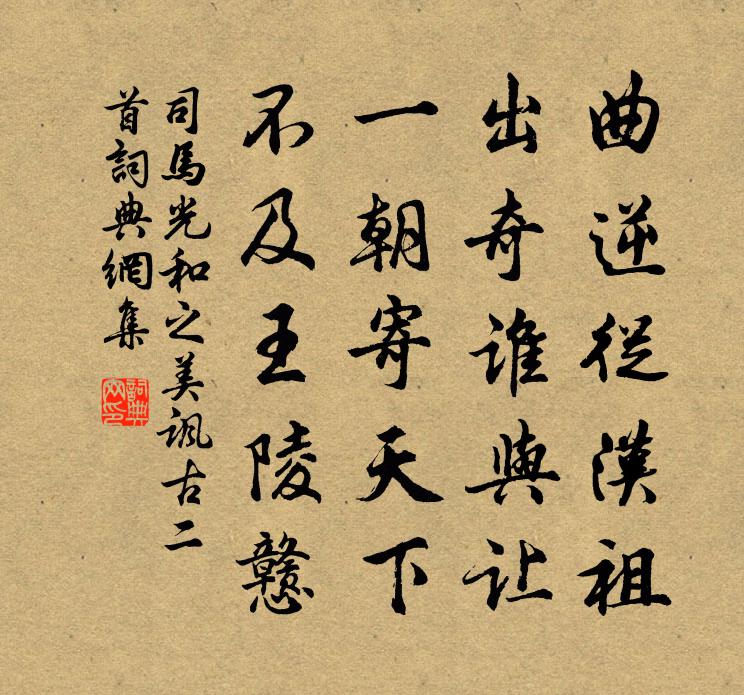 曲逆從漢祖
出奇誰與让
一朝寄天下
不及王陵戇
司馬光和之美諷古二
首詞典網集
詞典網印